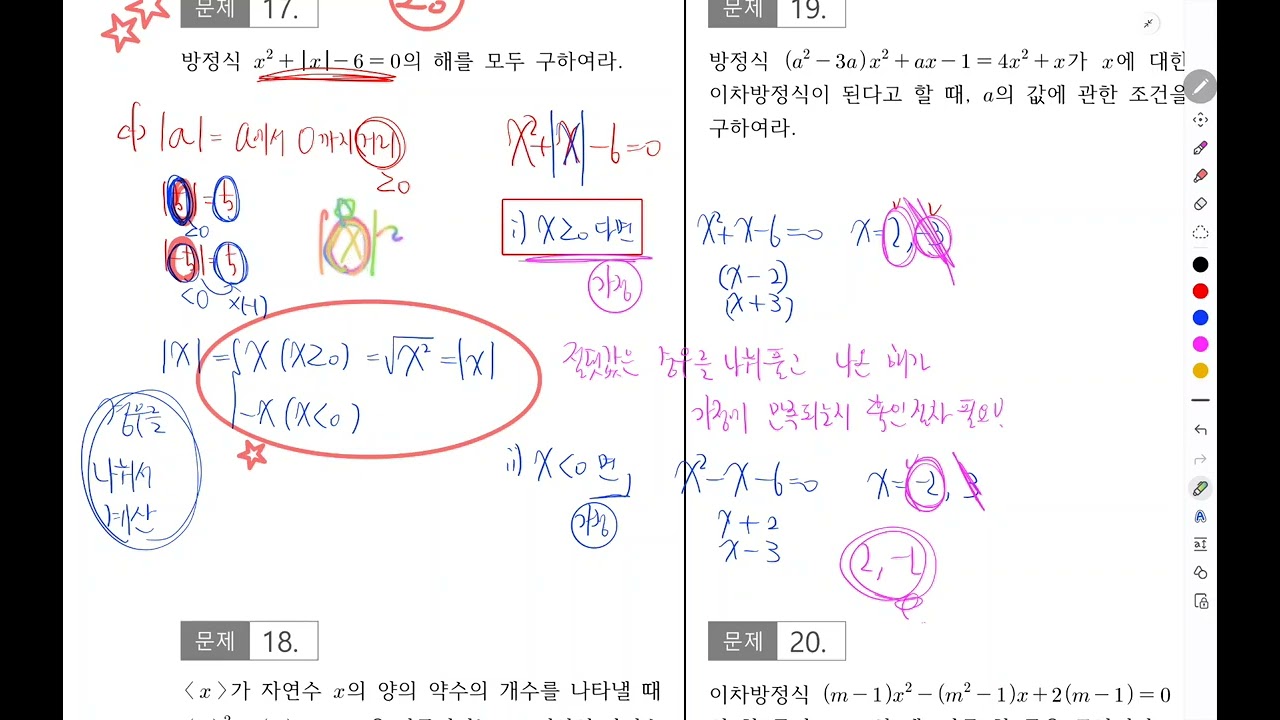 문제 17.
방정식 x²+|x|-6=0의 해를 모두 구하여라.
|a| = a에서 0까지 거리
≥0
|5| = 5
≥0
|-5| = 5
<0 ×(-1)
|x| = { x (x≥0) = √x² = |x|
-x (x<0)
경우를
나눠서
계산
x²+|x|-6=0
i) x≥0 다면
가정
x²+x-6=0 x=2, -3
(x-2)
(x+3)
절댓값은 경우를 나눠 풀고 나온 해가
가정에 만족되는지 확인절차 필요!
ii) x<0 면,
가정
x²-x-6=0 x=-2, 3
x+2
x-3
2, -2
문제 18.
〈x〉가 자연수 x의 양의 약수의 개수를 나타낼 때
문제 19.
방정식 (a²-3a)x²+ax-1=4x²+x가 x에 대한
이차방정식이 된다고 할 때, a의 값에 관한 조건을
구하여라.
문제 20.
이차방정식 (m-1)x²-(m²-1)x+2(m-1)=0